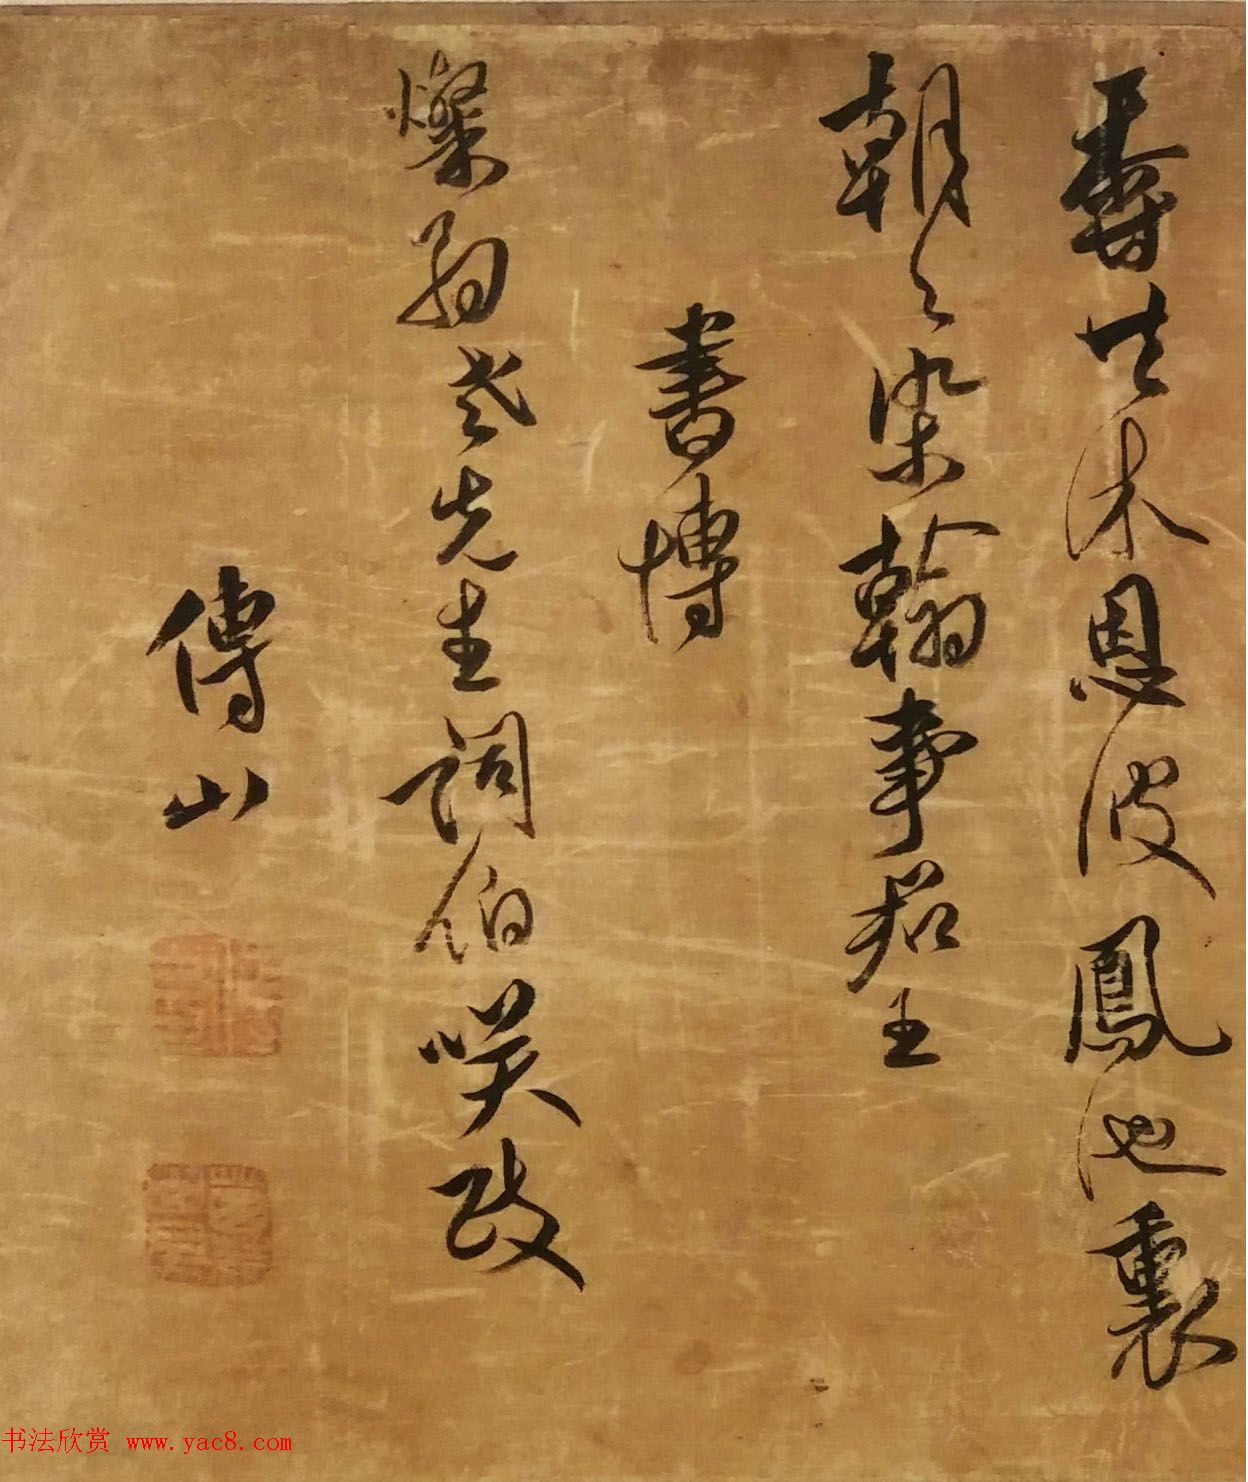 香共沐恩波鳳池裏
朝々染翰事君王
書博
燦翁老先生詞伯咲政
傅山
书法欣赏 www.yac8.com